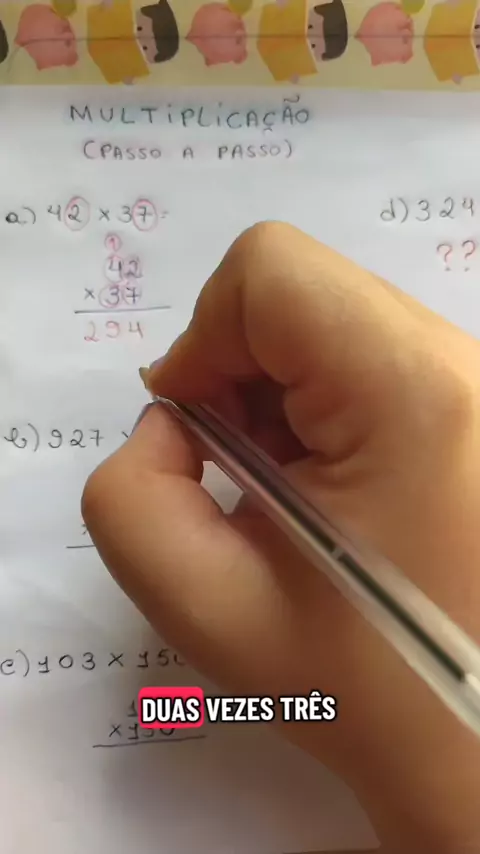 MULTIPLICAÇÃO
(PASSO A PASSO)
a) 42 x 37 =
1
42
x 37
294
b) 927
c) 103 x 150
x 150
d) 324
??
DUAS VEZES TRÊS